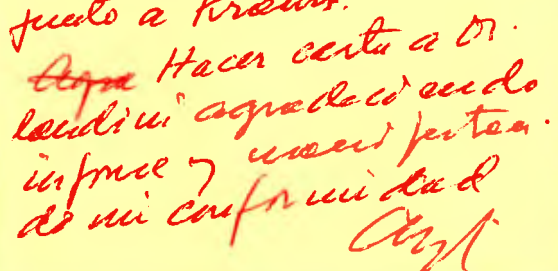 junto a Krauss.
Hacer carta a Dr.
Landini agradeciendo
informe y manifestan
do mi conformidad